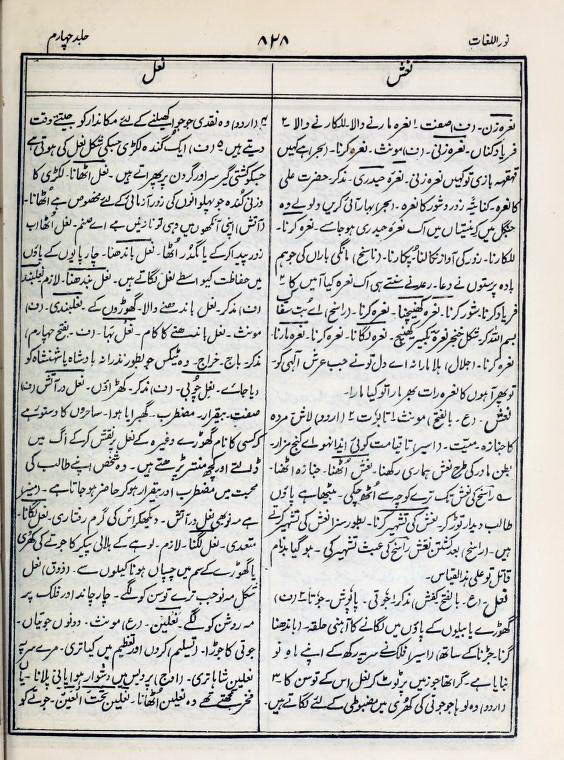 نور اللغات
۸۲۸
جلد چہارم
نعش
نعل
نعرہ زن۔ (ف) صفت۔ نعرہ مارنے والا۔ للکارنے والا۔ ۲
فریاد کناں۔ نعرہ زنی۔ (ف) مونث۔ نعرہ کرنا۔ (بحر) ہے کہیں
قہقہہ بازی تو کہیں نعرہ زنی۔ نعرۂ حیدری۔ مذکر۔ حضرت علی
کا نعرہ۔ کنایۃً زور و شور کا نعرہ۔ (بحر) بہار آئی کریں ولولے وہ
جنگل میں کہ نیستاں میں اک نعرۂ حیدری ہو جائے۔ نعرہ کرنا۔
للکارنا۔ زور کی آواز نکالنا۔ پکارنا۔ (ناسخ) مانگی باراں کی جو ہم
بادہ پرستوں نے دعا۔ رعد نے سنتے ہی اک نعرہ کیا آمیں کا ۳
فریاد کرنا۔ شور کرنا۔ نعرہ کھینچنا۔ نعرہ کرنا۔ (راسخ) اے بت سفاک
بسم اللہ کر شکل خنجر نعرۂ تکبیر کھینچ۔ نعرہ لگانا۔ نعرہ کرنا۔ نعرہ مارنا
نعرہ کرنا۔ (جلال) ہلا مارا نہ اے دل تو نے جب عرش الٰہی کو
تو پھر آہوں کا نعرہ رات بھر مارا تو کیا مارا۔
نعش۔ (ع۔ بالفتح) مونث ۱ تابوت ۲ (اردو) لاش۔ مردہ
کا جنازہ۔ میت۔ (اسیر) تا قیامت کوئی ایذا نہو اے کنج مزار۔
بطن مادر کی طرح نعش ہماری رکھنا۔ نعش اٹھنا۔ جنازہ اٹھنا۔
راسخ کی نعش تک ترے کوچہ سے اٹھ چکی۔ بیٹھا ہے پاؤں
طالب دیدار توڑ کر۔ نعش کی تشہیر کرنا۔ بطور سزا نعش کی تشہیر کرتے
ہیں۔ (راسخ) بعد کشتن نعش راسخ کی عبث تشہیر کی۔ ہو گیا بدنام
قاتل تو علیٰ ہذا القیاس۔
نعل۔ (ع۔ بالفتح۔ کفش) مذکر ۱ جوتی۔ پاپوش۔ جوتا ۲ (ف)
گھوڑے یا بیلوں کے پاؤں میں لگانے کا آہنی حلقہ۔ (باندھنا
گرنا۔ جڑنا کے ساتھ) (اسیر) فلک نے سر پہ رکھ کے اپنے ماہ نو
بنایا ہے۔ گرا تھا جو زمیں پر ٹوٹ کر نعل اس کے توسن کا ۳
(اردو) وہ لوہا جو جوتی کی کھڑی میں مضبوطی کے لئے لگاتے ہیں۔
۴ (اردو) وہ نقدی جو جوا کھیلنے کے لئے مکاندار کو جیتتے وقت
دیتے ہیں ۵ (ف) ایک گندہ لکڑی جسکی شکل نعل کی ہوتی ہے
جسکو کشتی گیر سر اور گردن پر پھراتے ہیں۔ نعل اٹھانا۔ لکڑی کا
وزنی گندہ جو پہلوانوں کی زور آزمائی کے لئے مخصوص ہے اٹھانا۔
(آتش) اپنی آنکھوں میں وہی تو نازنیں ہے اے صنم۔ نعل اٹھا اب
زور پیدا کر کے یا مگدر اٹھا۔ نعل باندھنا۔ چارپایوں کے پاؤں
میں حفاظت کیواسطے نعل لگاتے ہیں۔ نعل بندھنا۔ لازم۔ نعلبند
(ف) مذکر۔ نعل باندھنے والا۔ گھوڑوں کے۔ نعلبندی۔ (ف)
مونث۔ نعل باندھنے کا کام۔ نعل بہا۔ (ف۔ بفتح چہارم)
مذکر۔ باج۔ خراج۔ وہ ٹیکس جو بطور نذرانہ بادشاہ یا شہنشاہ کو
دیا جائے۔ نعل چوبی۔ (ف) مذکر۔ کھڑاؤں۔ نعل در آتش (ف)
صفت۔ بیقرار۔ مضطرب۔ گھبرایا ہوا۔ ساحروں کا دستور ہے
کہ کسی کا نام گھوڑے وغیرہ کے نعل پر نقش کر کے آگ میں
ڈالتے اور کچھ منتر پڑھتے ہیں۔ وہ شخص اپنے طالب کی
محبت میں مضطرب اور بیقرار ہو کر حاضر ہو جاتا ہے۔
ہے مہ نو بھی نعل در آتش۔ دیکھ کر اس کی گرم رفتاری۔ نعل لگانا۔
متعدی۔ نعل لگنا۔ لازم۔ لوہے کے ہلالی پیکر کا جوتے کی کھڑی
یا گھوڑے کے سم میں چسپاں ہونا کیلوں سے۔ (ذوق) نعل
شکل مہ نو جب ترے توسن کو لگے۔ چار چاند اور فلک پر
مہ روشن کو لگے۔ نعلین۔ (ع) مونث۔ دونوں جوتیاں۔
جوتی کا جوڑا۔ (تسلیم) کروں اور تعظیم میں کیا تری۔ مرے سر پہ
نعلین شاہا تری۔ (اوج) پردیس میں دشوار ہوا پانی پلانا۔ یاں
فخر سمجھتے تھے وہ نعلین اٹھانا۔ نعلین تحت العین۔ جوتے کو